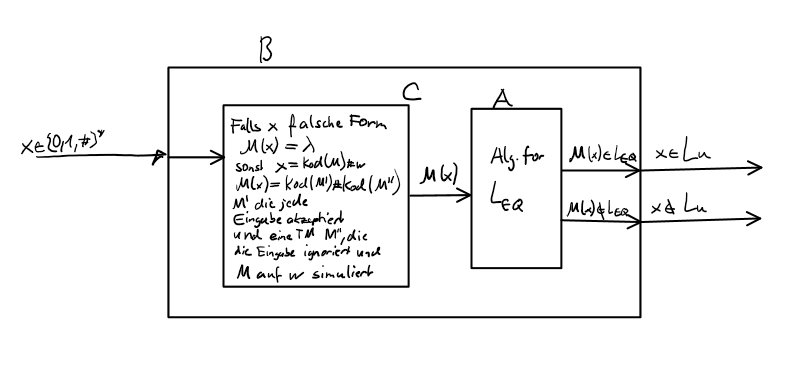 B
C
A
x∈{0,1,#}*
Falls x falsche Form
M(x) = λ
sonst x = Kod(M)#w
M(x) = Kod(M')#Kod(M'')
M' die jede
Eingabe akzeptiert
und eine TM M'', die
die Eingabe ignoriert und
M auf w simuliert
M(x)
Alg. for
L_EQ
M(x)∈L_EQ
x∈L_u
M(x)∉L_EQ
x∉L_u